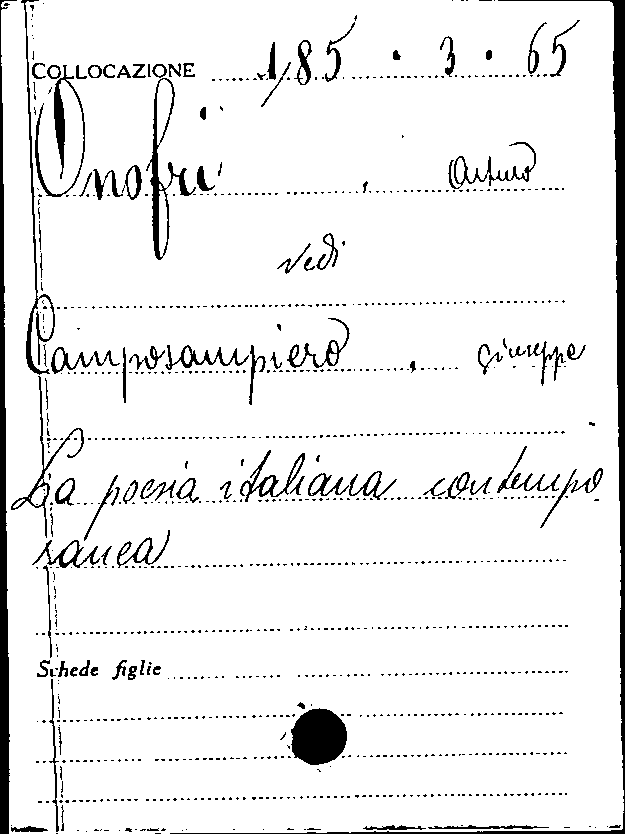 COLLOCAZIONE 185 • 3 • 65
Onofri , Arturo
vedi
Camposampiero , Giuseppe
La poesia italiana contempo
ranea
Schede figlie